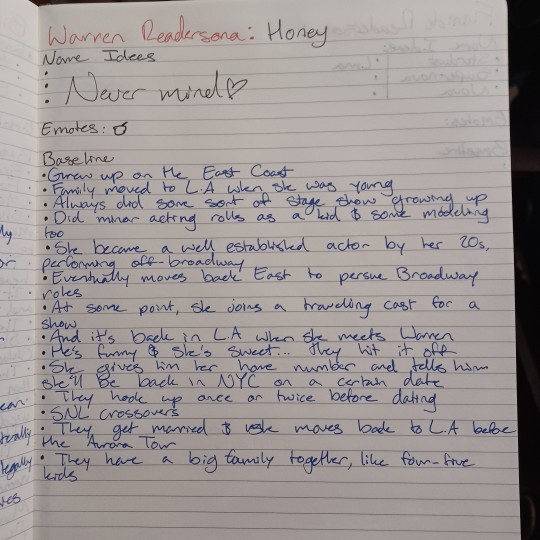 Warren Readersona: Honey
Name Idees
•
•
• Never mind♡
Emotes:
Baseline
• Grew up on the East Coast
• Family moved to L.A when she was young
• Always did some sort of stage show growing up
• Did minor acting rolls as a kid & some modeling
too
• She became a well established actor by her 20s,
performing off-broadway
• Eventually moves back East to persue Broadway
roles
• At some point, she joins a traveling cast for a
show
• And it's back in L.A when she meets Warren
• He's funny & she's sweet... they hit it off
• She gives him her home number and tells him
she'll be back in NYC on a certain date
• They hook up once or twice before dating
• SNL crossovers
• They get married & moves back to L.A before
the Aurora Tour
• They have a big family together, like four-five
kids